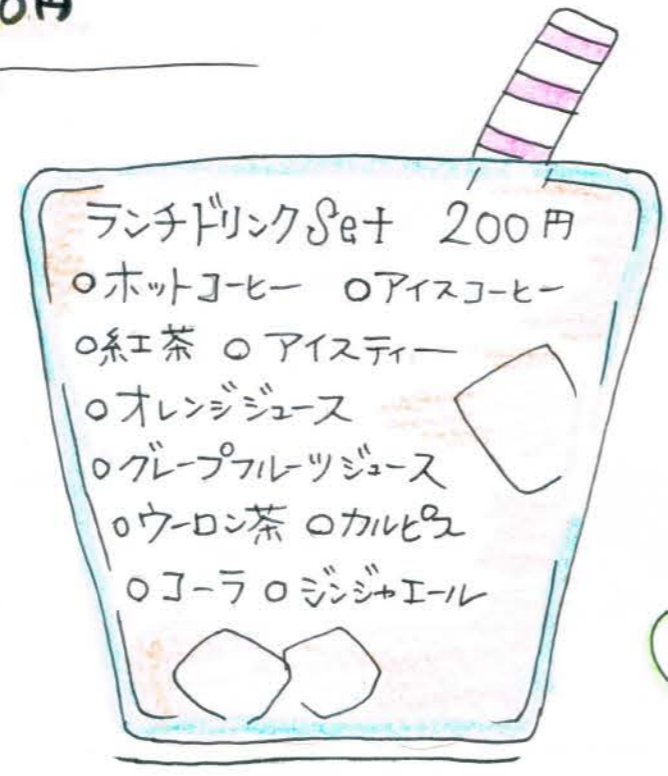 0円
ランチドリンクSet 200円
○ホットコーヒー ○アイスコーヒー
○紅茶 ○アイスティー
○オレンジジュース
○グレープフルーツジュース
○ウーロン茶 ○カルピス
○コーラ ○ジンジャエール